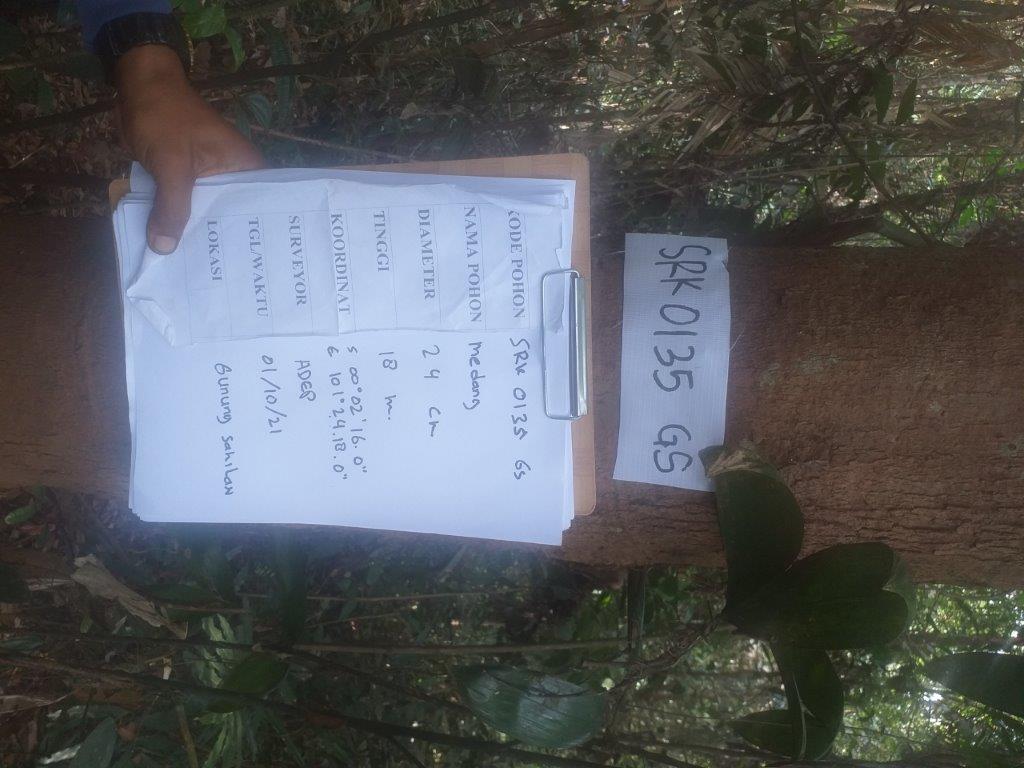 SRK 0135 GS
KODE POHON SRK 0135 GS
NAMA POHON medang
DIAMETER 24 cm
TINGGI 18 m.
KOORDINAT S 00°02'16.0"
E 101°24.18.0"
SURVEYOR ADEP
TGL/WAKTU 01/10/21
LOKASI Gunung sahilan